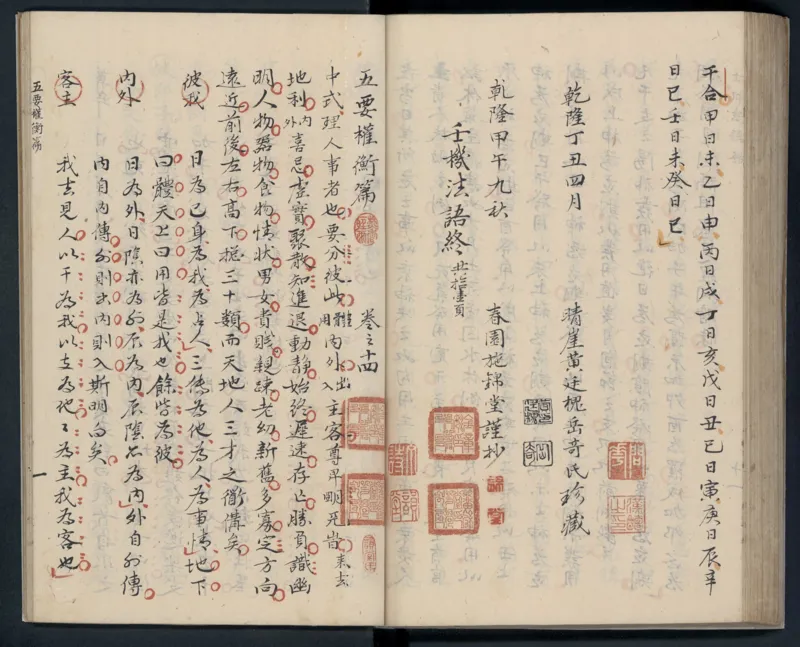 干合甲日未乙日申丙日戌丁日亥戊日丑己日寅庚日辰辛
日巳壬日未癸日巳
乾隆丁丑四月 晴崖黃廷槐岳奇氏珍藏
乾隆甲午九秋 春園施錦堂謹抄
壬機法語終 共拾壹頁
五要權衡篇 卷之十四
中式理人事者也要分彼此體用內外出入主客尊卑明死
地利內外喜忌虛實聚散知進退動靜始終遲速存亡勝負識幽
明人物器物食物情狀男女貴賤親疎老幼新舊多寡定方向
遠近前後左右高下總三十類而天地人三才之衜備矣
彼我 日為己身為我為占人三傳為他為人為事情地下
曰體天上曰用皆是我也餘皆為彼
內外 日為外日陰亦為外辰為內辰陰亦為內外自外傳
內自內傳外則出內則入斯明白矣
客主 我去見人以干為我以支為他他為主我為客也
五要權衡篇
一